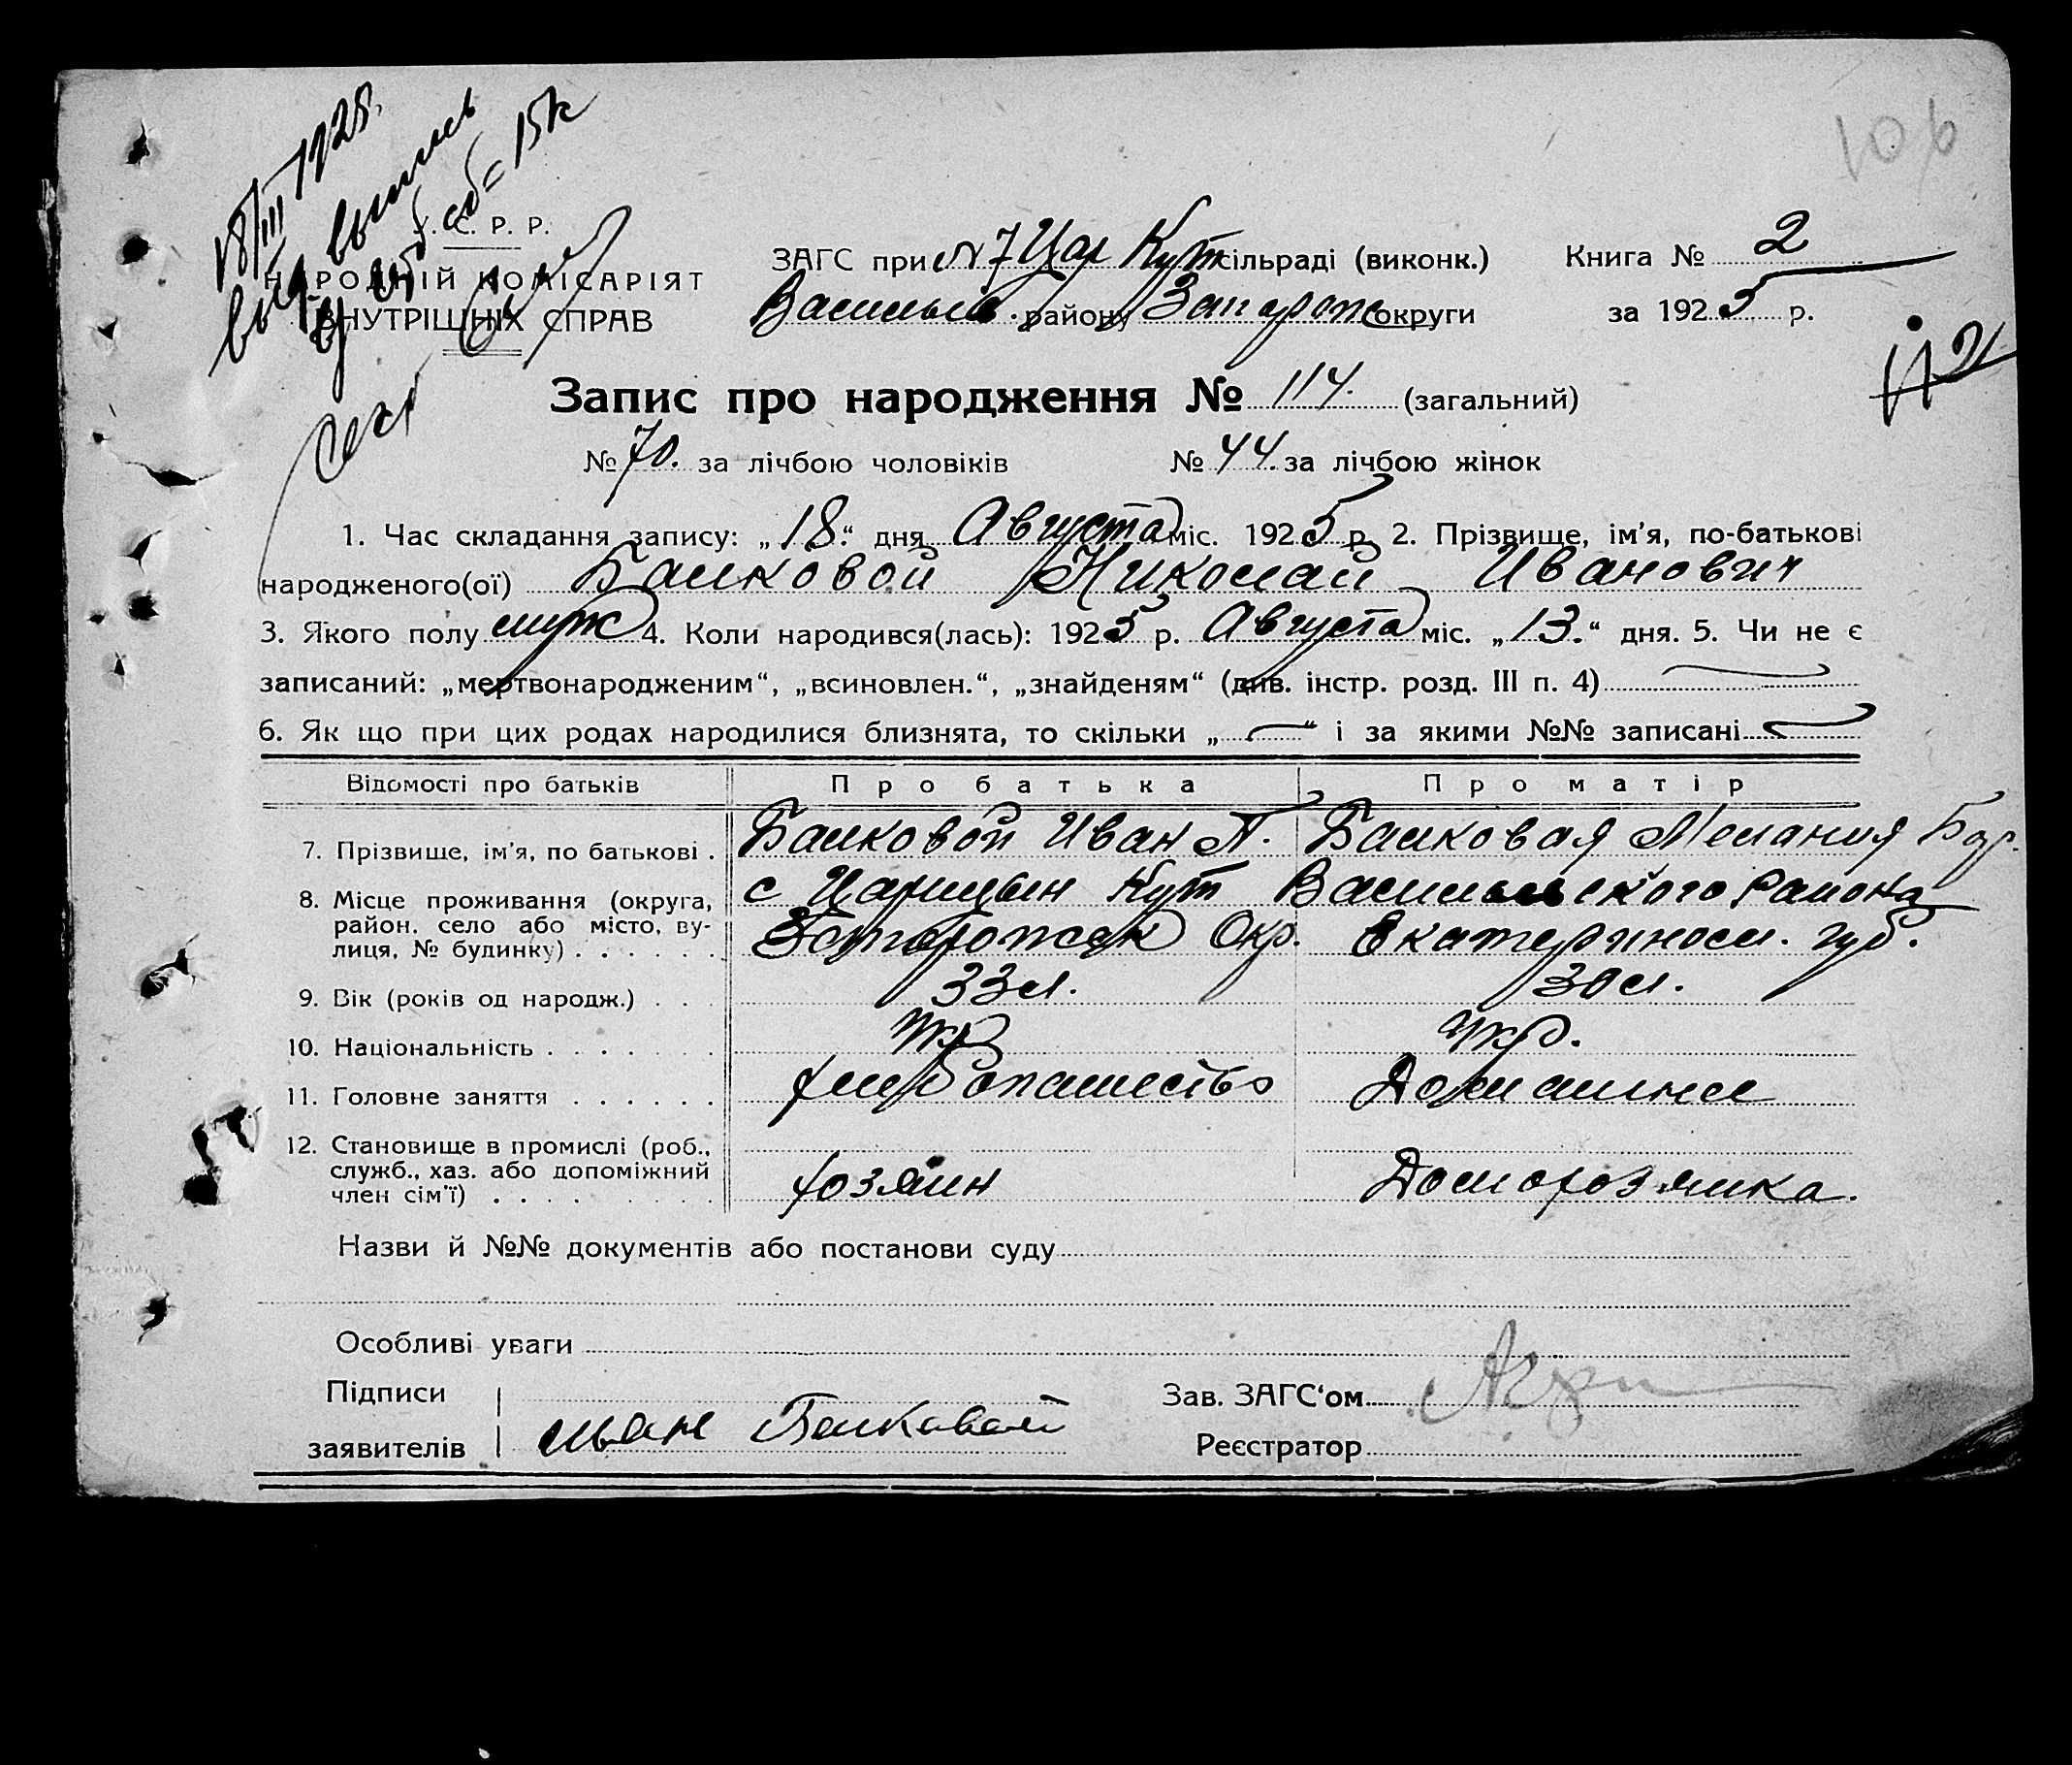 18/III 1925.
выд выпись
15к
У. С. Р. Р.
НАРОДНІЙ КОМІСАРІЯТ
ВНУТРІШНІХ СПРАВ
106
ЗАГС при №7 Цар Кут сільраді (виконк.) Книга № 2
Васильев. району Запорож округи за 1925 р.
112
Запис про народження № 114. (загальний)
№ 70. за лічбою чоловіків № 44. за лічбою жінок
1. Час складання запису: „18.“ дня Августа міс. 1925 р. 2. Прізвище, ім'я, по-батькові
народженого(ої) Балковой Николай Иванович
3. Якого полу муж 4. Коли народився(лась): 1925 р. Августа міс. „13.“ дня. 5. Чи не є
записаний: „мертвонародженим“, „всиновлен.“, „знайденям“ (див. інстр. розд. III п. 4)
6. Як що при цих родах народилися близнята, то скільки „ — “ і за якими №№ записані
Відомості про батьків Про батька Про матір
7. Прізвище, ім'я, по батькові . Балковой Иван П. Балковая Мелания
8. Місце проживання (округа, с Царицын Кут Васильевского района
район, село або місто, ву-
лиця, № будинку) . . . . . . Запорожск Окр. Екатериносл. губ.
9. Вік (років од народж.) . . . 33 л. 30 л.
10. Національність . . . . . . . Укр Укр.
11. Головне заняття . . . . . . хлебопашество Домашнее
12. Становище в промислі (роб.,
служб., хаз. або допоміжний
член сім'ї) . . . . хозяин Домохозяйка.
Назви й №№ документів або постанови суду
Особливі уваги
Підписи Зав. ЗАГС'ом
заявителів Иван Балковой Реєстратор